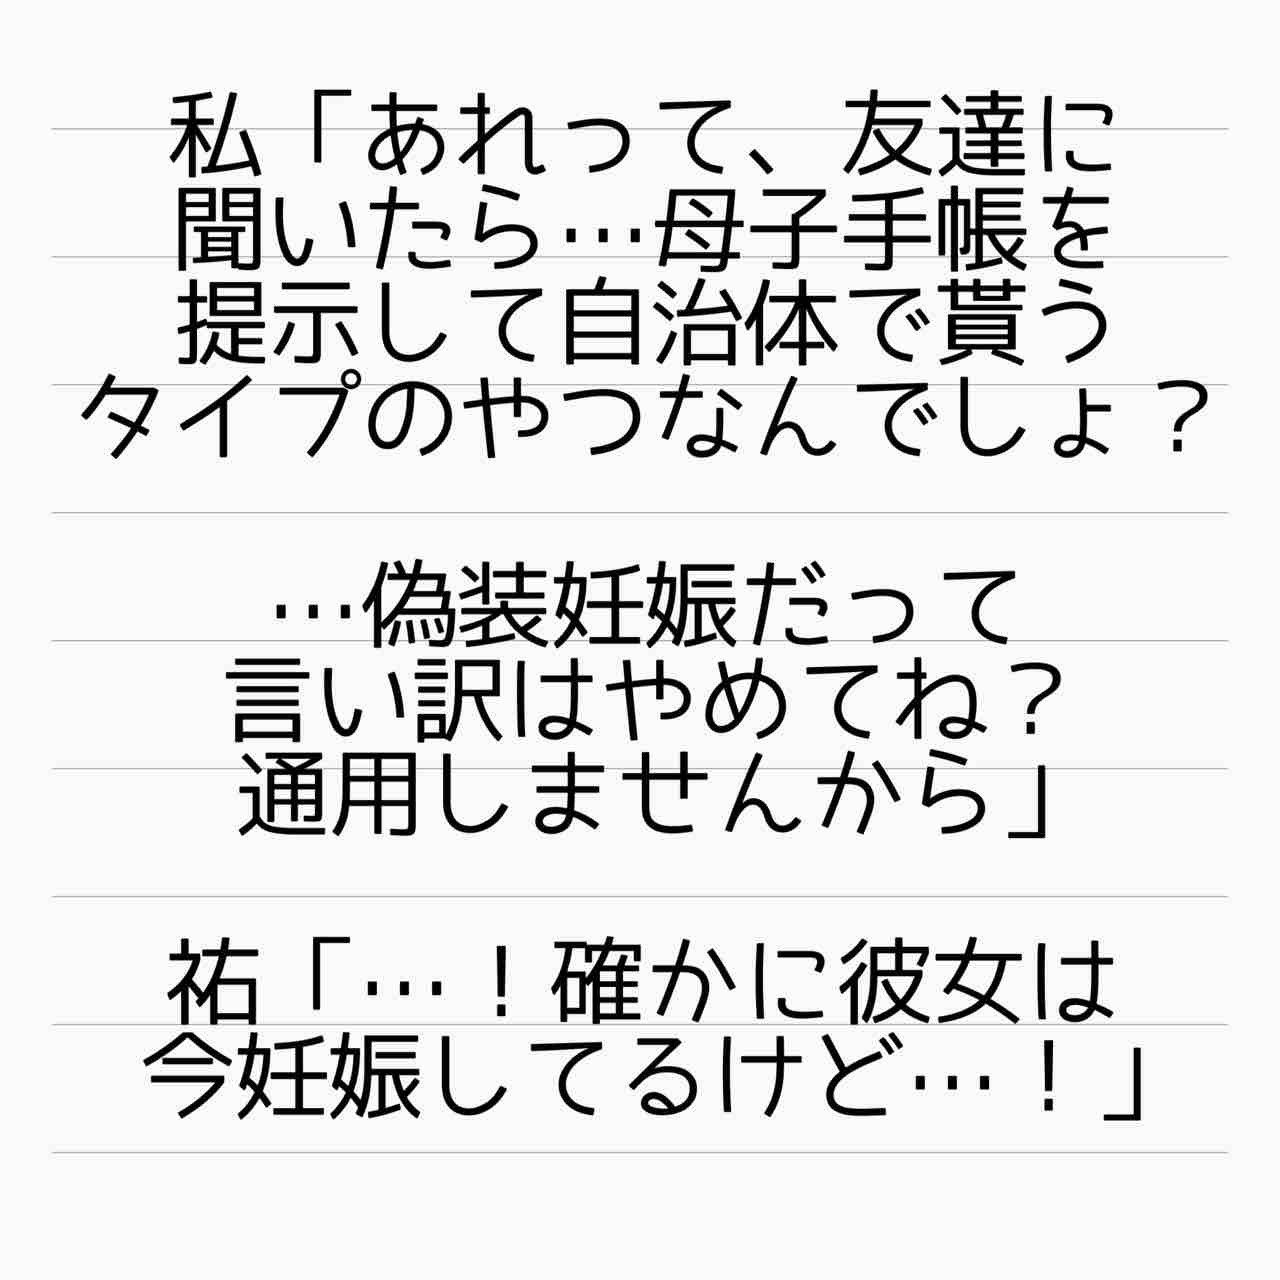 私「あれって、友達に
聞いたら…母子手帳を
提示して自治体で貰う
タイプのやつなんでしょ？
…偽装妊娠だって
言い訳はやめてね？
通用しませんから」
祐「…！確かに彼女は
今妊娠してるけど…！」